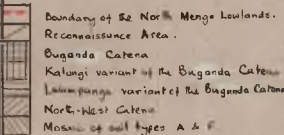 Boundary of the North Mengo Lowlands.
Reconnaissance Area.
Buganda Catena
Kalungi variant of the Buganda Catena
variant of the Buganda Catena
North-West Catena
Mosaic of soil types A & F